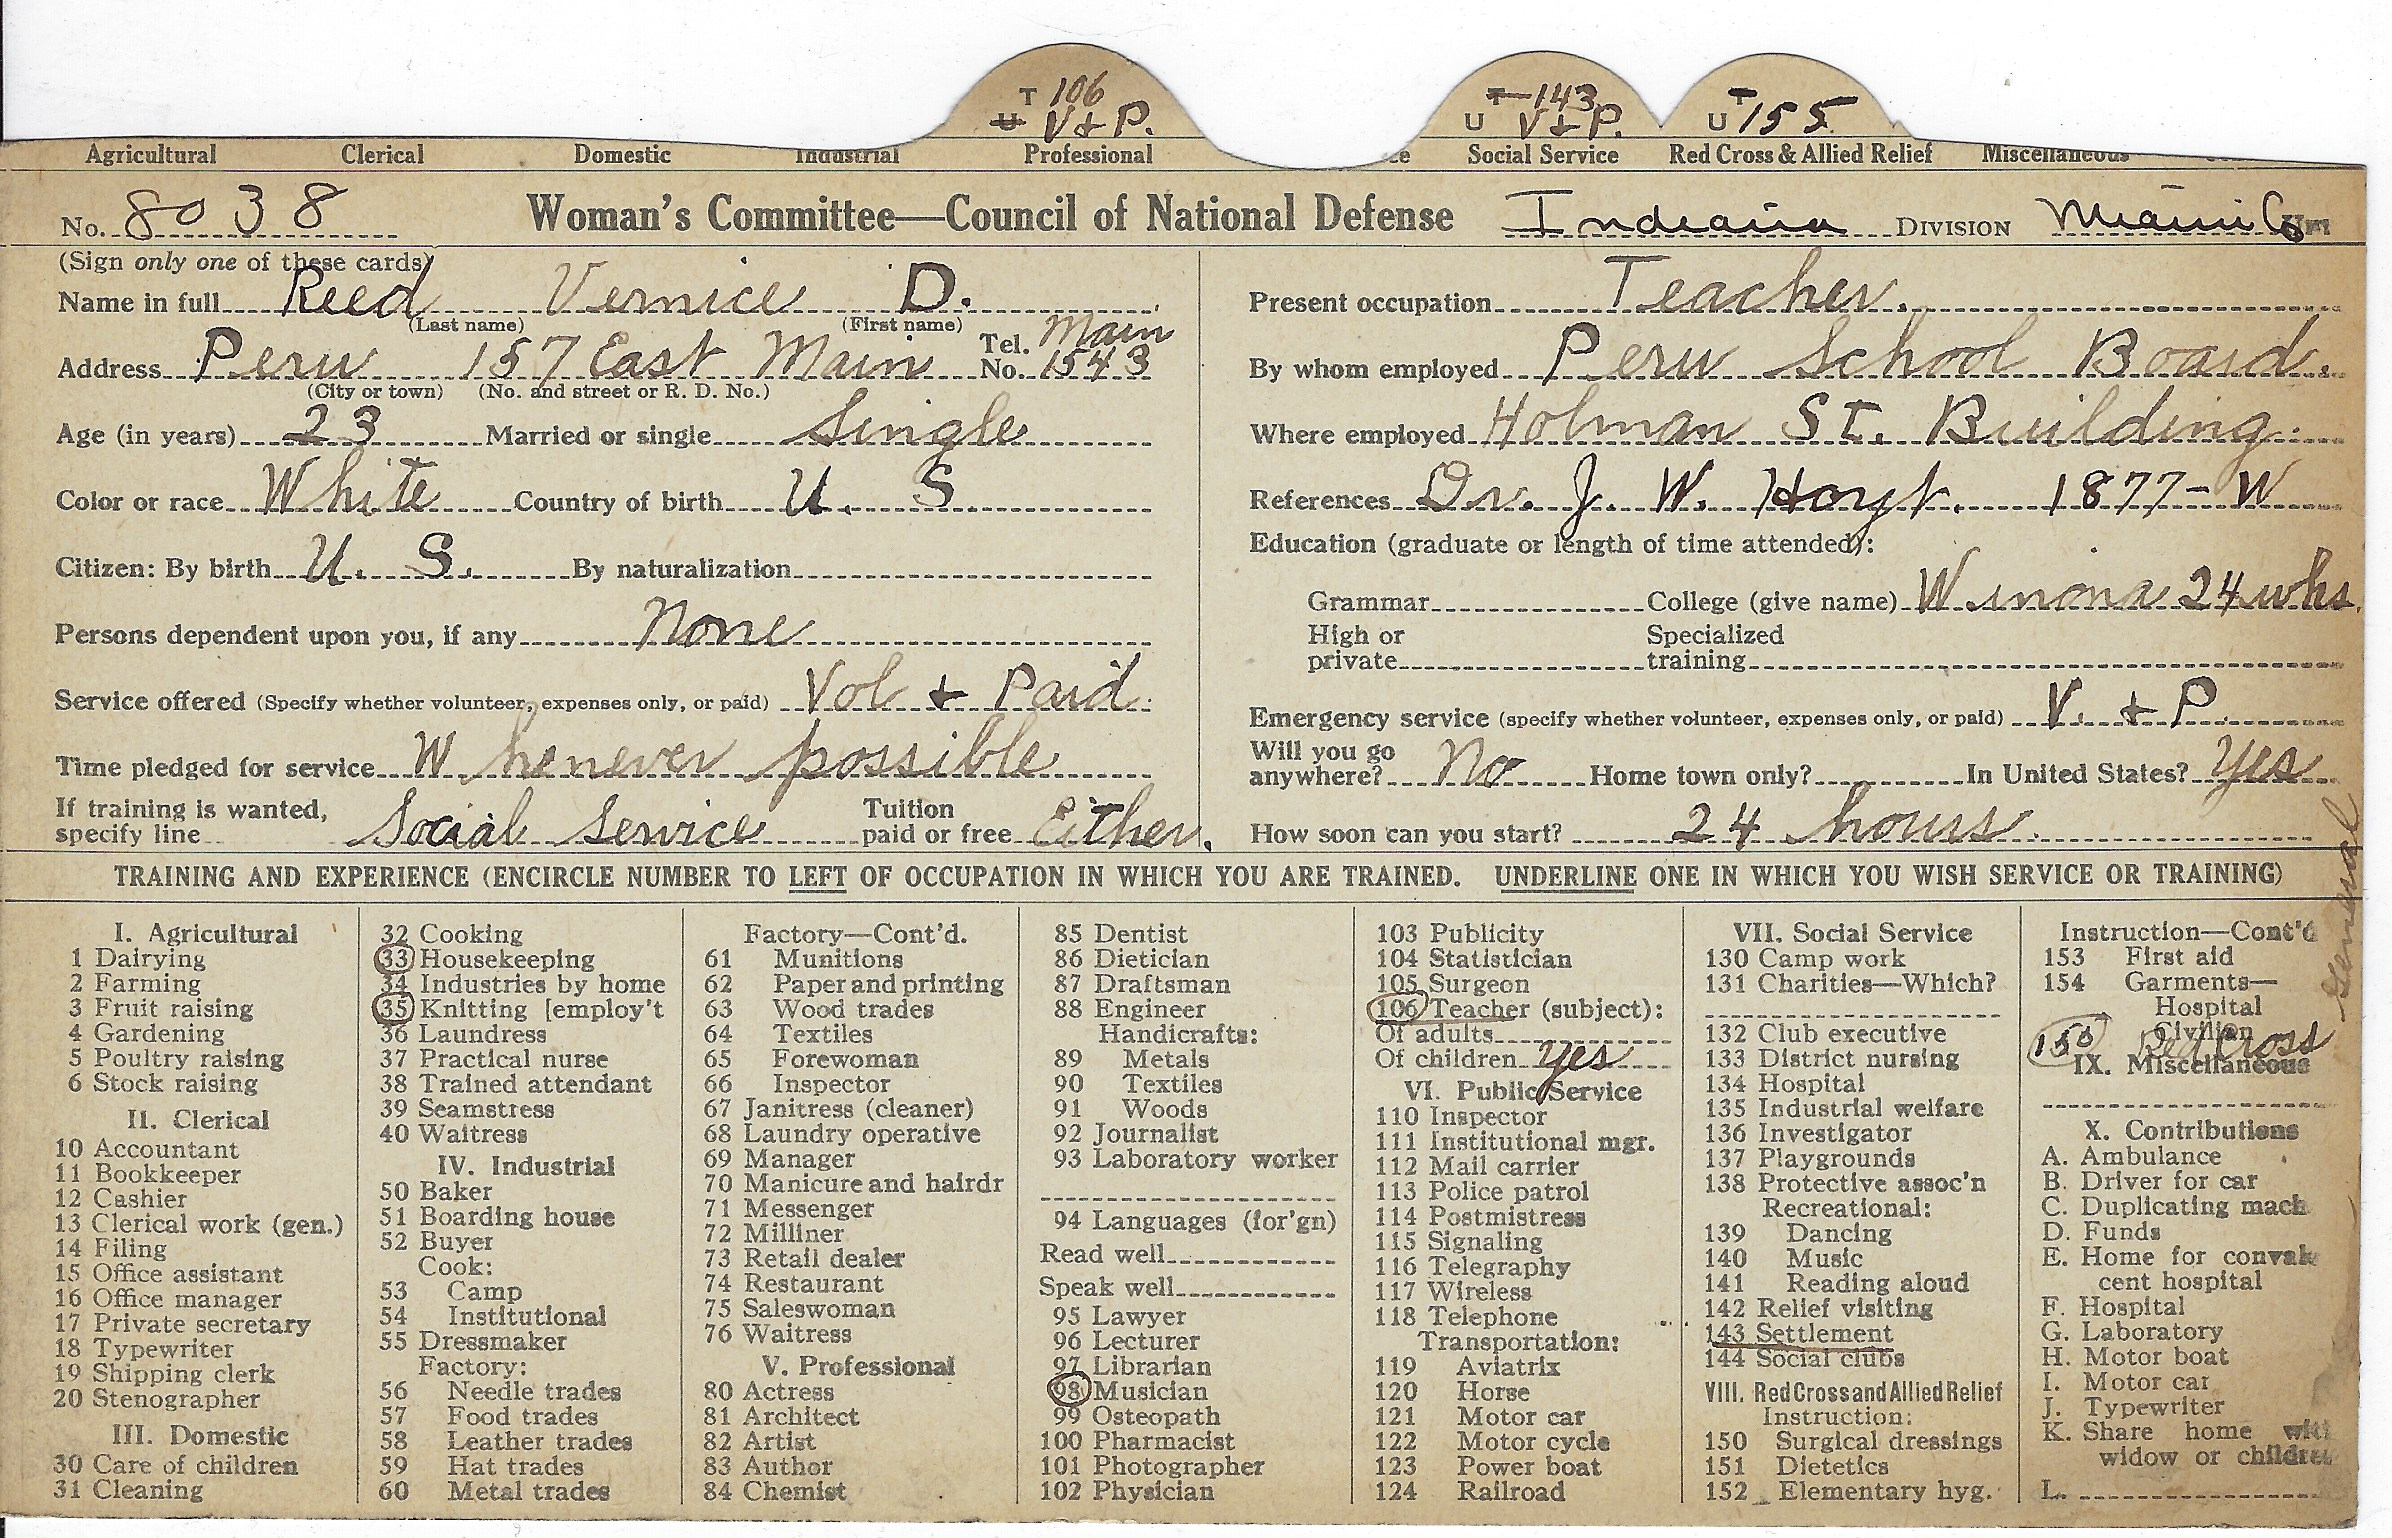 T 106
U V & P.
T 143
U V & P.
T
U 155
Agricultural Clerical Domestic Industrial Professional Social Service Red Cross & Allied Relief Miscellaneous
No. 8038 Woman's Committee—Council of National Defense Indiana DIVISION Miami Co
(Sign only one of these cards)
Name in full Reed Vernice D.
(Last name) (First name)
Address Peru 157 East Main Tel. No. Main 1543
(City or town) (No. and street or R. D. No.)
Age (in years) 23 Married or single Single
Color or race White Country of birth U. S.
Citizen: By birth U. S. By naturalization
Persons dependent upon you, if any None
Service offered (Specify whether volunteer, expenses only, or paid) Vol & Paid.
Time pledged for service Whenever possible
If training is wanted,
specify line Social Service Tuition paid or free Either.
Present occupation Teacher.
By whom employed Peru School Board.
Where employed Holman St. Building.
References Dr. J. W. Hoyt. 1877-W
Education (graduate or length of time attended):
Grammar College (give name) Winona 24 whs.
High or private Specialized training
Emergency service (specify whether volunteer, expenses only, or paid) V. & P.
Will you go
anywhere? No Home town only? In United States? Yes
How soon can you start? 24 hours.
General
TRAINING AND EXPERIENCE (ENCIRCLE NUMBER TO LEFT OF OCCUPATION IN WHICH YOU ARE TRAINED. UNDERLINE ONE IN WHICH YOU WISH SERVICE OR TRAINING)
I. Agricultural
1 Dairying
2 Farming
3 Fruit raising
4 Gardening
5 Poultry raising
6 Stock raising
II. Clerical
10 Accountant
11 Bookkeeper
12 Cashier
13 Clerical work (gen.)
14 Filing
15 Office assistant
16 Office manager
17 Private secretary
18 Typewriter
19 Shipping clerk
20 Stenographer
III. Domestic
30 Care of children
31 Cleaning
32 Cooking
33 Housekeeping
34 Industries by home
35 Knitting [employ't
36 Laundress
37 Practical nurse
38 Trained attendant
39 Seamstress
40 Waitress
IV. Industrial
50 Baker
51 Boarding house
52 Buyer
Cook:
53 Camp
54 Institutional
55 Dressmaker
Factory:
56 Needle trades
57 Food trades
58 Leather trades
59 Hat trades
60 Metal trades
Factory—Cont'd.
61 Munitions
62 Paper and printing
63 Wood trades
64 Textiles
65 Forewoman
66 Inspector
67 Janitress (cleaner)
68 Laundry operative
69 Manager
70 Manicure and hairdr
71 Messenger
72 Milliner
73 Retail dealer
74 Restaurant
75 Saleswoman
76 Waitress
V. Professional
80 Actress
81 Architect
82 Artist
83 Author
84 Chemist
85 Dentist
86 Dietician
87 Draftsman
88 Engineer
Handicrafts:
89 Metals
90 Textiles
91 Woods
92 Journalist
93 Laboratory worker
94 Languages (for'gn)
Read well
Speak well
95 Lawyer
96 Lecturer
97 Librarian
98 Musician
99 Osteopath
100 Pharmacist
101 Photographer
102 Physician
103 Publicity
104 Statistician
105 Surgeon
106 Teacher (subject):
Of adults
Of children yes
VI. Public Service
110 Inspector
111 Institutional mgr.
112 Mail carrier
113 Police patrol
114 Postmistress
115 Signaling
116 Telegraphy
117 Wireless
118 Telephone
Transportation:
119 Aviatrix
120 Horse
121 Motor car
122 Motor cycle
123 Power boat
124 Railroad
VII. Social Service
130 Camp work
131 Charities—Which?
132 Club executive
133 District nursing
134 Hospital
135 Industrial welfare
136 Investigator
137 Playgrounds
138 Protective assoc'n
Recreational:
139 Dancing
140 Music
141 Reading aloud
142 Relief visiting
143 Settlement
144 Social clubs
VIII. Red Cross and Allied Relief
Instruction:
150 Surgical dressings
151 Dietetics
152 Elementary hyg.
Instruction—Cont'd
153 First aid
154 Garments—
Hospital
Civilian
Red Cross
IX. Miscellaneous
X. Contributions
A. Ambulance
B. Driver for car
C. Duplicating mach
D. Funds
E. Home for convales
cent hospital
F. Hospital
G. Laboratory
H. Motor boat
I. Motor car
J. Typewriter
K. Share home with
widow or children
L.